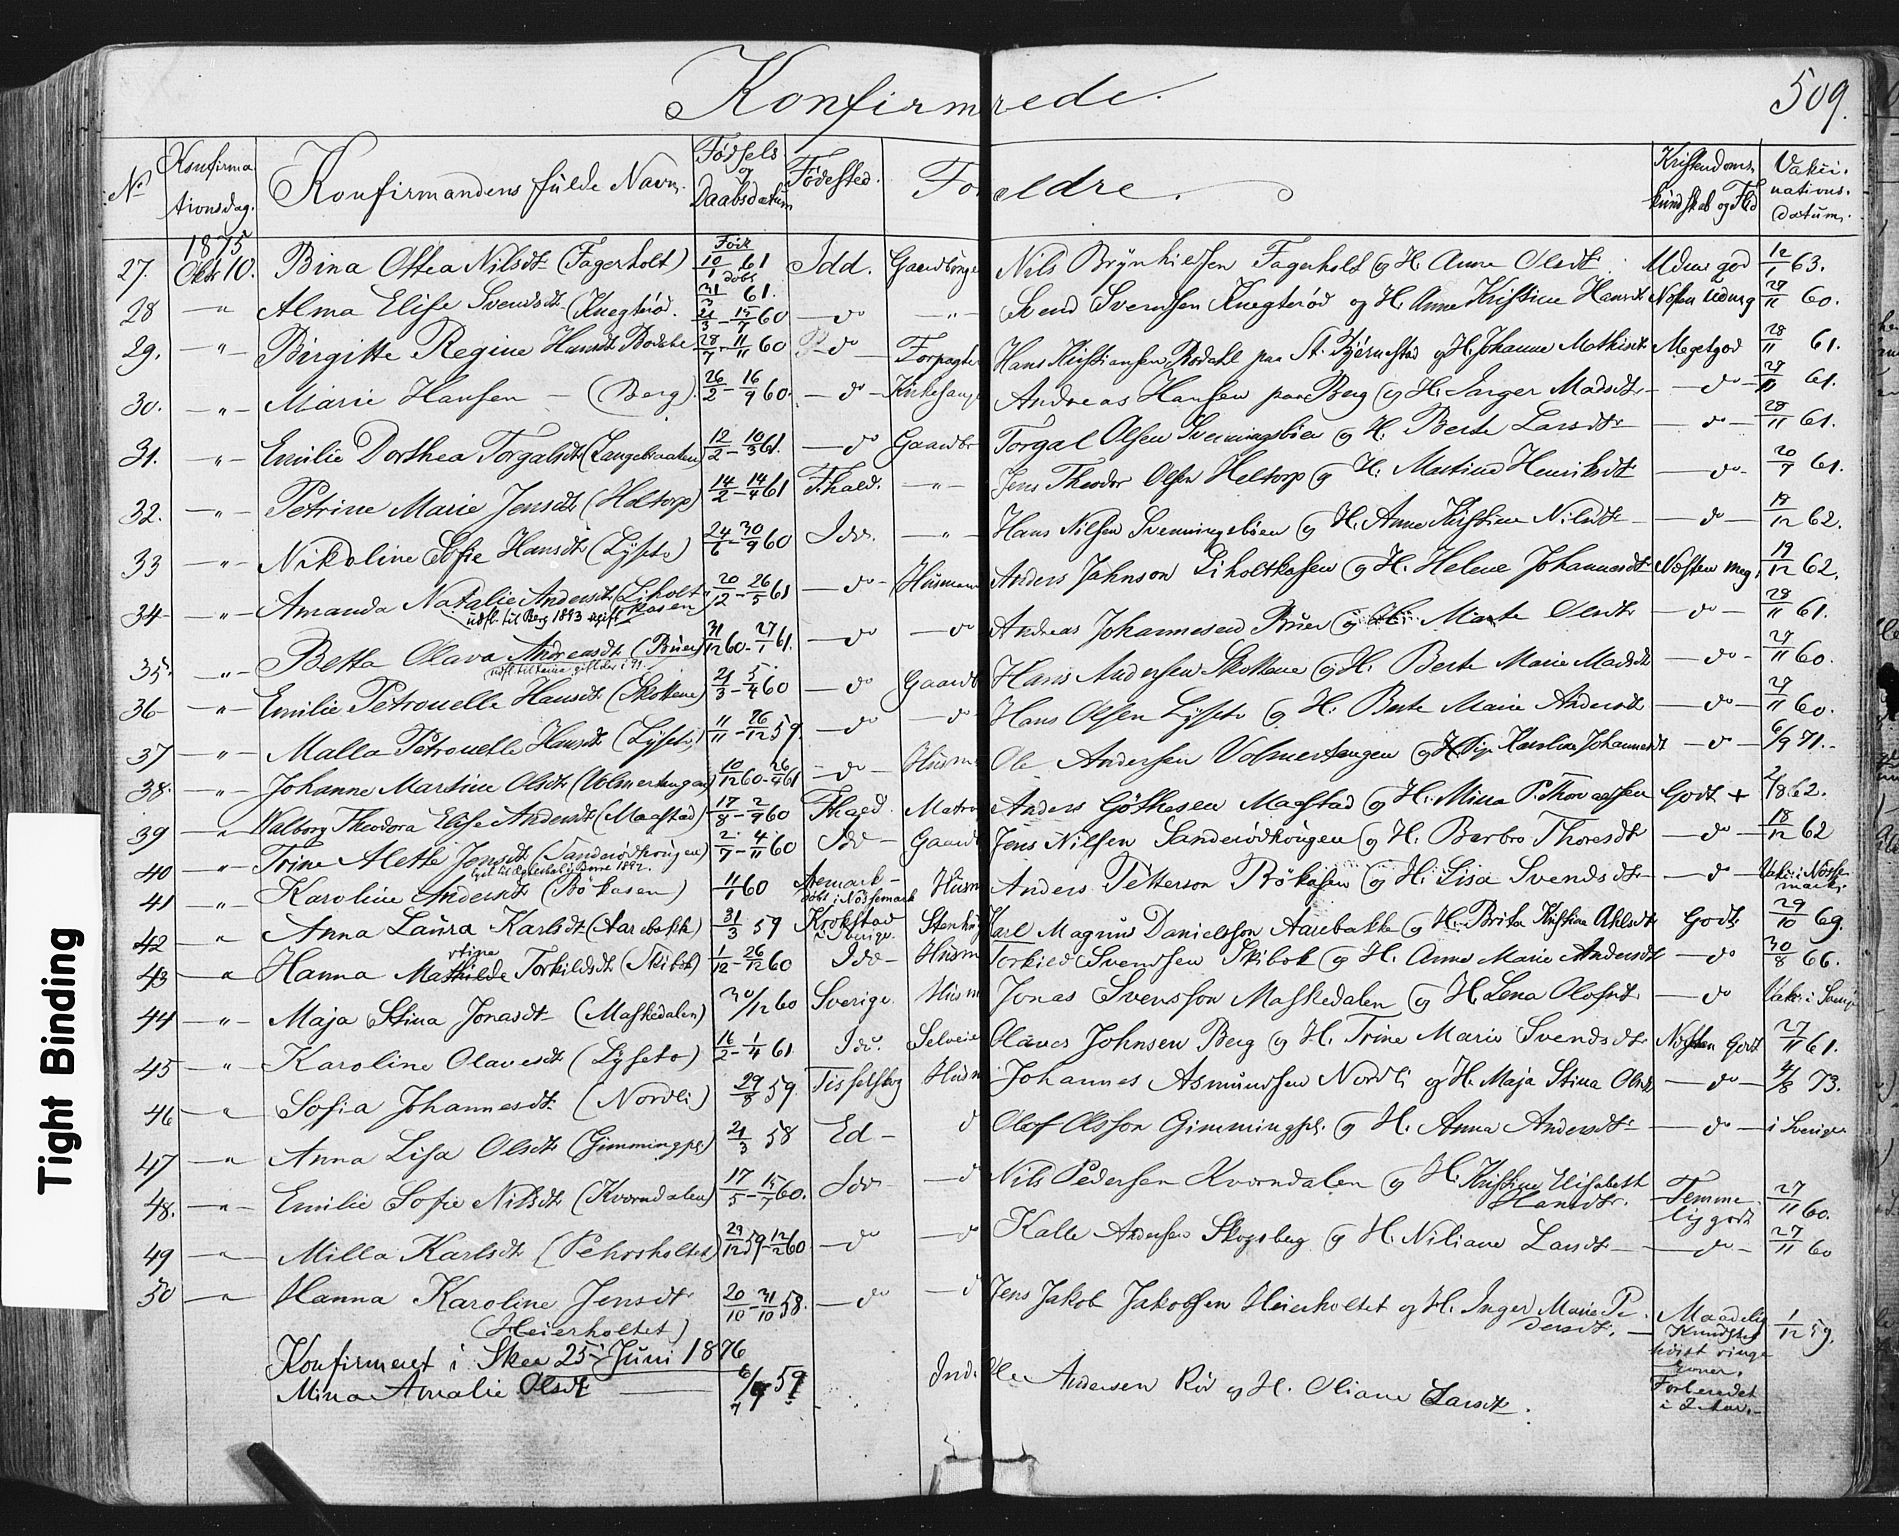 Konfirmrede.
509.
No Konfirmationsdag. Konfirmandens fulde Navn. Fødsels og Daabsdatum Fødested. Fo eldre. Kristendomskundskab og Flid Vakcinationsdatum.
1875
27. Oktr 10. Bina Ottea Nilsdt (Fagerholt) Født 10/1 61 døbt 31/3 61. Idd. Gaardbruger Nils Brynhildsen Fagerholt og H. Anne Olsdt. Udm. god 12/1 63.
28 -"- Alma Elise Svendsdt (Knegterød. 21/3 - 15/7 60 - do -"- Svend Svendsen Knegterød og H. Anne Kristine Hansdt Næsten Udmg 29/11 60.
29. -"- Birgitte Regine Hansdt Bodahl 28/7 - 11/11 60 do Forpagter Hans Kristiansen Bodahl paa St. Bjørnestad og H. Johanne Mathisdt Meget god 28/11 61.
30. -"- Marie Hansen - (Berg) 26/2 - 16/9 60. - do - Kirkesang Andreas Hansen paa Berg og H. Inger Madsdt - do - 29/11 61.
31. -"- Emilie Dorthea Torgalsdt (Langebraaten) 12/2 - 10/3 61. - do Gaardbr Torgal Olsen Svenningsbøen og H. Berte Larsdt - do - 28/11 61.
32. -"- Petrine Marie Jensdt (Heltorp) 14/2 - 14/4 61 Fhald. -"- Jens Theodor Olsen Heltorp og H. Martine Henriksdt - do - 20/7 61.
33 -"- Nikoline Sofie Hansdt (Lyseto) 24/6 - 30/9 60 Idd. -"- Hans Nilsen Svenningsbøen og H. Anne Kristine Nilsdt - do - 19/12 62.
34 -"- Amanda Natalie Andersdt (Liholtkasen) 20/12 - 26/5 61 - do - Husmand Anders Jahnson Liholtkasen og H. Helene Johannesdt Næsten meg. 19/12 62.
udfl. til Berg 1893 ugift
35. -"- Betta Olava Andreasdt (Buer) 31/12 60 - 27/1 61. - do - do Andreas Johannesen Buer og H. Marte Olsdt - do - 28/11 61.
36 -"- Emilie Petronelle Hansdt (Skokene) 21/3 - 5/4 60 - do Gaardb Hans Andersen Skokene og H. Berte Marie Madsdt - do - 27/11 60.
37 -"- Malla Petronelle Hansdt (Lyseto) 11/11 - 26/12 59. - do - do - Hans Olsen Lyseto og H. Berte Marie Andersdt - do - 27/11 60.
38. -"- Johanne Martine Olsdt (Volmertangen) 10/12 60 - 26/4 61 - do - Husm Ole Andersen Volmertangen og Pige Karoline Johannesdt - do - 6/9 71.
39 -"- Valborg Theodora Elise Andersdt (Magstad) 17/8 - 2/9 60 Fhald. Matro Anders Gøthesen Magstad og H. Mina P. Thoresen Godt + 2/8 62.
40 -"- Trine Alette Jensdt (Sanderødkrogen) 2/7 - 4/11 60 Idd - Gaardb Jens Nilsen Sanderødkrogen og H. Berbro Thoresdt - do - 18/12 62
41 -"- Karoline Andersdt (Bøkasen) 4/1 60 Aremark - døbt i Nössemark Husm Anders Petterson Bökasen og H. Lisa Svendsdt - do - Vakc. i Nössemark.
42 -"- Anna Laura Karlsdt (Aarebakk) 31/3 59 Krokstad i Sverige. Stenhug Karl Magnus Danielsson Aarebakke og H. Brita Kristina Ahlsdt Godt 29/10 69.
43 -"- Hanna Mathilde Torkildsdt (Skibok) 1/12 - 26/12 60 Idd - Husm Torkild Svendsen Skibok og H. Anne Marie Andersdt - do 30/8 66.
44 -"- Maja Stina Jonasdt - (Maskedalen) 30/12 60 Sverige. Husm Jonas Svensson Maskedalen og H. Lena Olofsdt - do Vakc. i Sverige
45 -"- Karoline Olavesdt (Lyseto) 16/2 - 1/4 61 Idd. Selveier Olaves Johnsen Berg og H. Trine Marie Svendsdt Næsten Godt 27/11 61.
46 -"- Sofia Johannesdt. (Nordli) 29/8 59. Tisselskog Husm Johannes Asmundsen Nordli og H. Maja Stina Olsdt - do - 4/8 73.
47 -"- Anna Lisa Olsdt (Gimmingpl) 21/3 58 Ed - d Olof Olsson Gimmingpl. og H. Anna Andersdt - do - i Sverige
48. -"- Emilie Sofie Nilsdt (Kverndalen) 17/5 - 15/7 60. Idd - - d Nils Pedersen Kverndalen og H. Kristine Elisabeth Hansdtr. Temmelig godt 27/11 60.
49 -"- Milla Karlsdt (Pehrsholtet) 29/12 59 - 12/2 60 - do - do Kalle Andersen Skogsberg og H. Niliane Larsdt - do - 27/11 60
50 -"- Hanna Karoline Jensdt (Heierholtet) 20/10 - 31/10 58. - do - d Jens Jakob Jakobsen Heierholtet og H. Inger Marie Pedersdt. - Maadelig Kundskab hvist ringe Evner. Forberedet i 2 Aar. 1/12 59.
Konfirmeret i Skee 25 Juni 1876
Mina Amalie Olsdt 59 Ind. Ole Andersen Rød og H. Oliane Larsdt.
Tight Binding